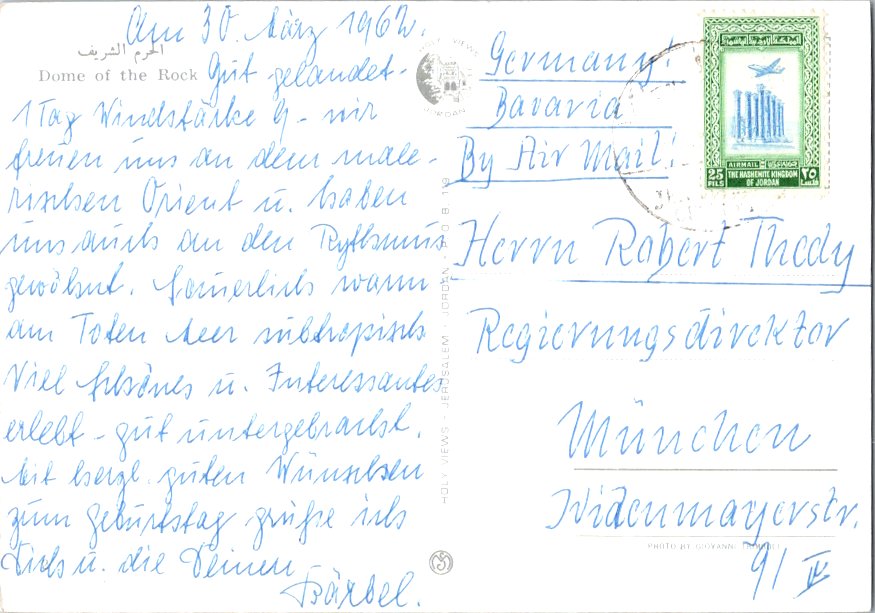 Am 30. März 1962.
الحرم الشريف
Dome of the Rock
Gut gelandet -
1 Tag Windstärke 9 - wir
freuen uns an dem male-
rischen Orient u. haben
uns auch an den Rythmus
gewöhnt. Sommerlich warm
am Toten Meer subtropisch
Viel Schönes u. Interessantes
erlebt - gut untergebracht.
Mit herzl. guten Wünschen
zum Geburtstag grüße ich
Dich u. die Deinen
Bärbel.
HOLY VIEWS
JORDAN
HOLY VIEWS - JERUSALEM - JORDAN - P.O.B. 119
Germany!
Bavaria
By Air Mail!
AIRMAIL
25 FILS
THE HASHEMITE KINGDOM
OF JORDAN
٢٥
فلسا
Herrn Robert Thedy
Regierungsdirektor
München
Widenmayerstr.
PHOTO BY GIOVANNI
91 IV